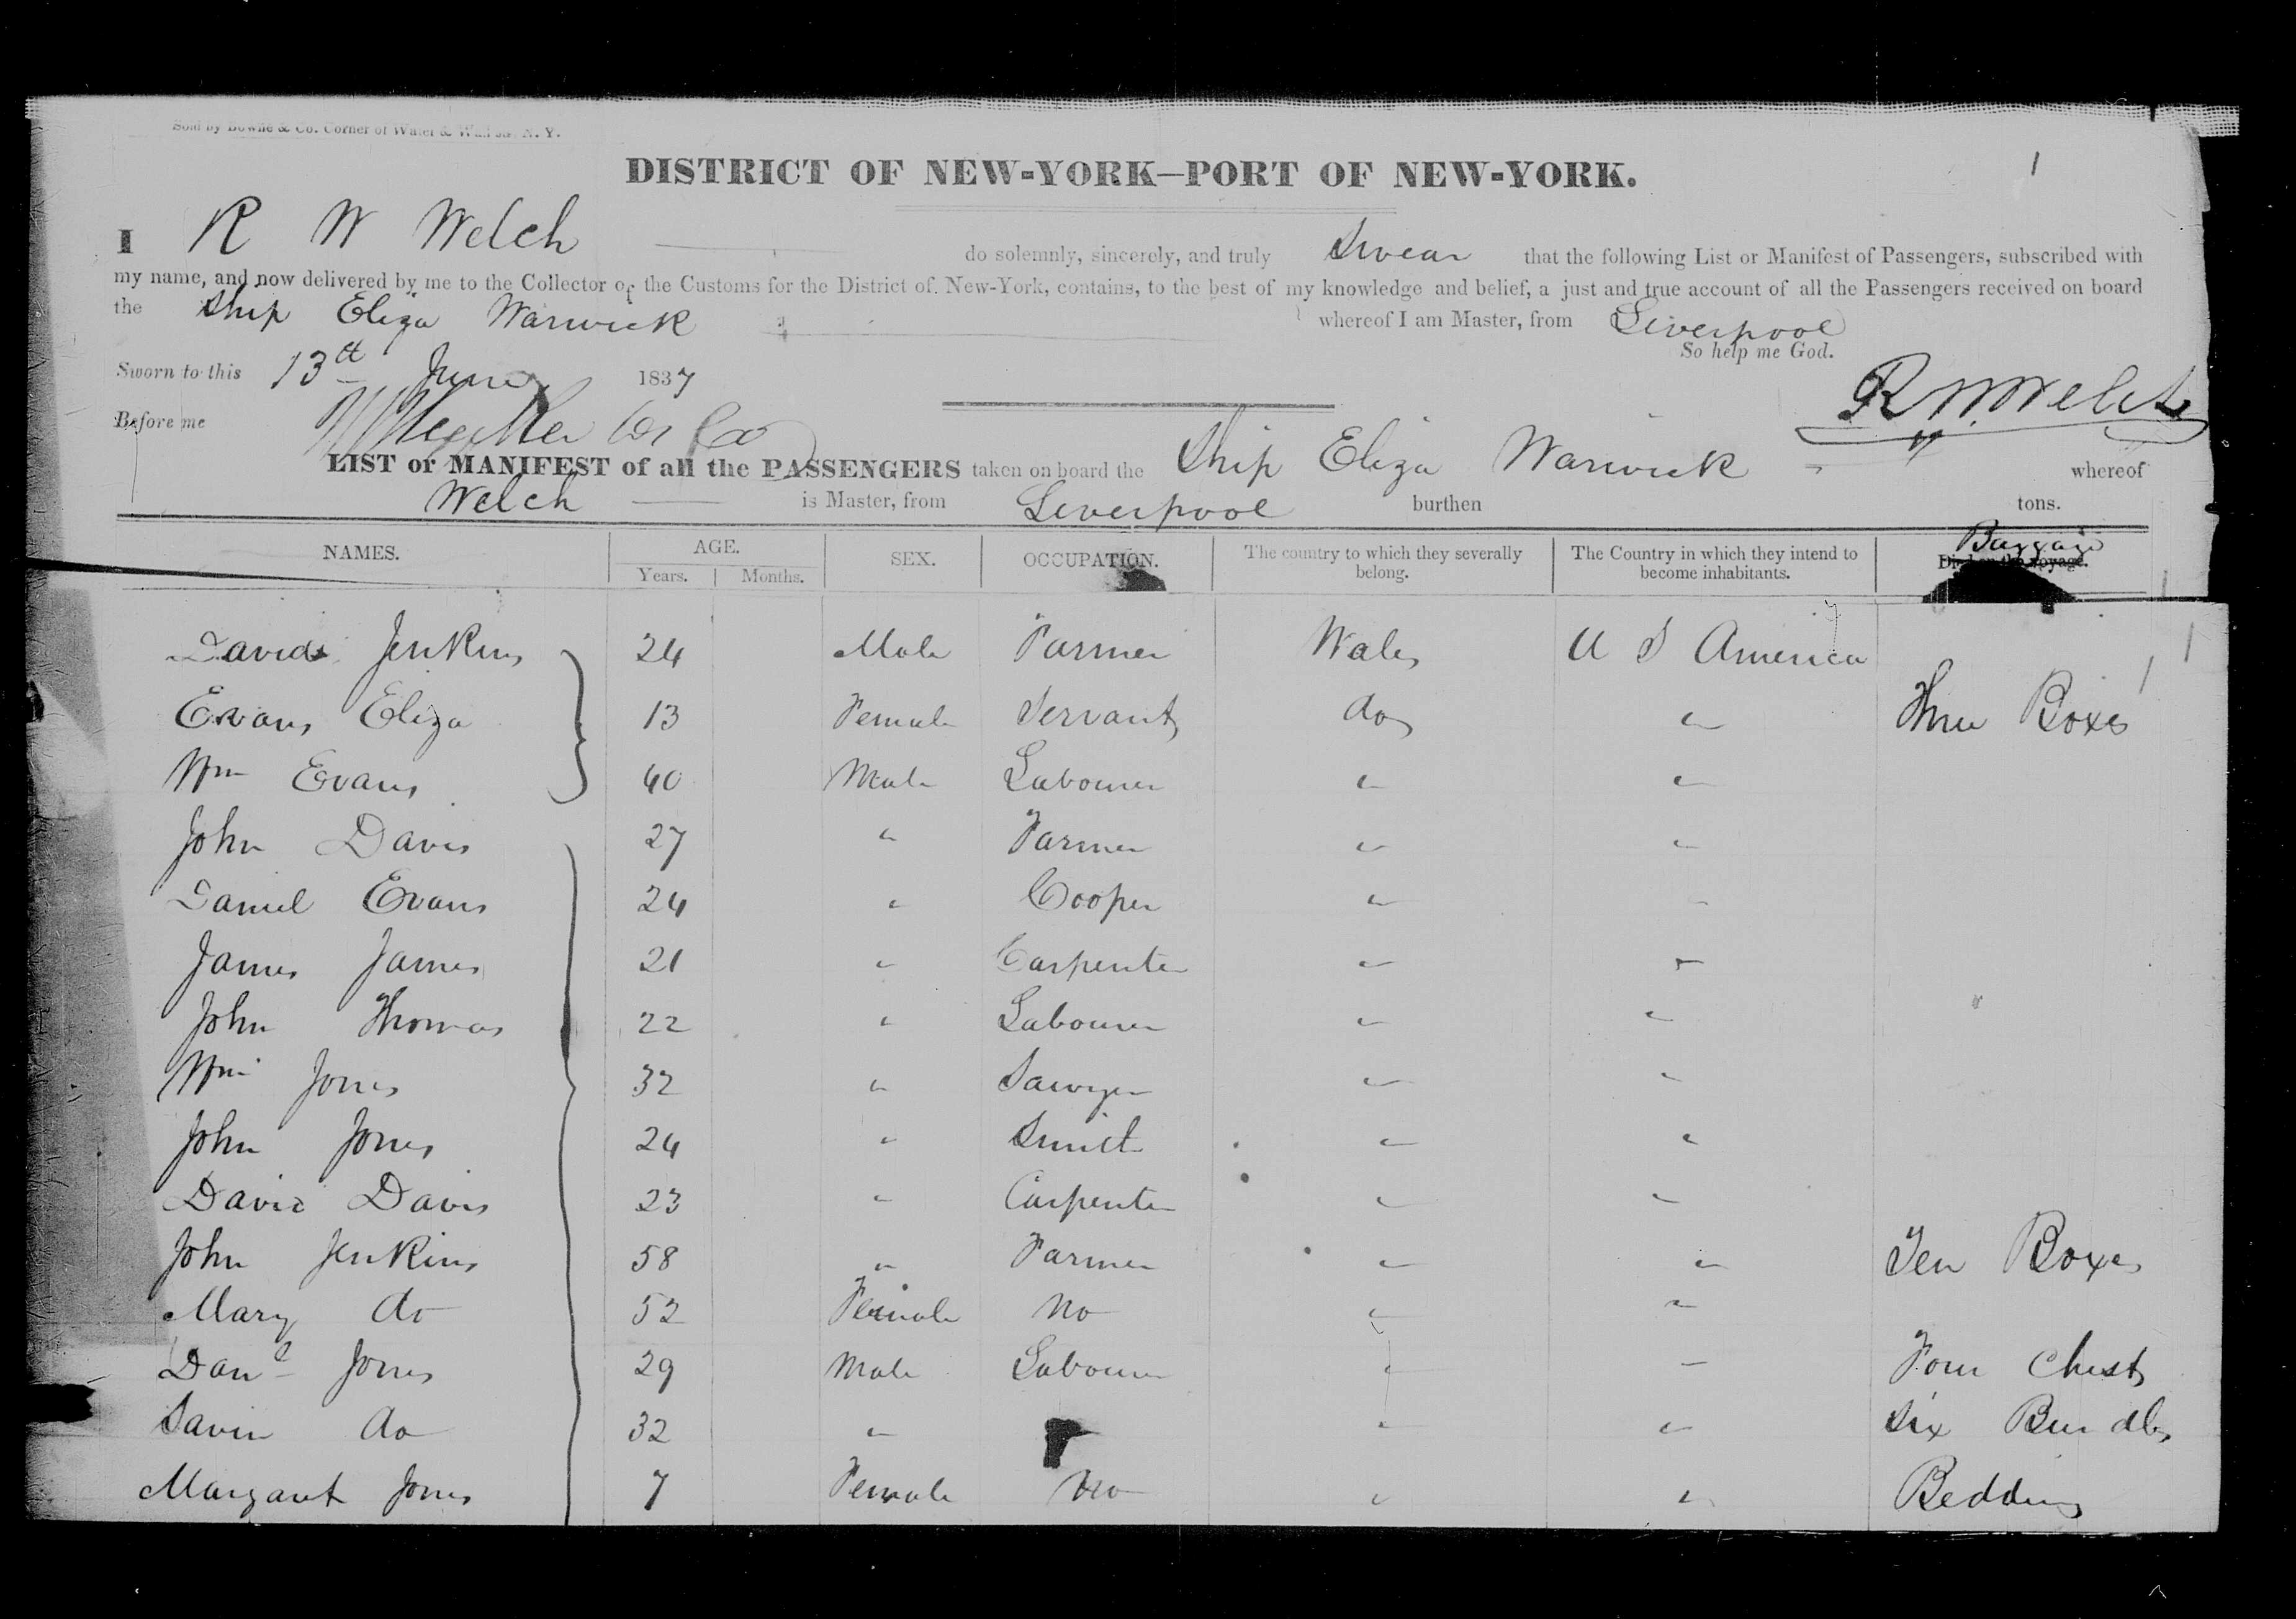 Sold by Bowne & Co. Corner of Water & Wall St. N. Y.
1
DISTRICT OF NEW-YORK—PORT OF NEW-YORK.
I R W Welch do solemnly, sincerely, and truly Swear that the following List or Manifest of Passengers, subscribed with
my name, and now delivered by me to the Collector of the Customs for the District of New-York, contains, to the best of my knowledge and belief, a just and true account of all the Passengers received on board
the Ship Eliza Warwick whereof I am Master, from Liverpool
So help me God.
Sworn to this 13th June 1837
R W Welch
Before me
LIST or MANIFEST of all the PASSENGERS taken on board the Ship Eliza Warwick whereof
Welch is Master, from Liverpool burthen tons.
NAMES. AGE. SEX. OCCUPATION. The country to which they severally belong. The Country in which they intend to become inhabitants. Baggage Died on the voyage.
Years. Months.
David Jenkins 24 Male Farmer Wales U S America
Evans Eliza 13 Female Servant do " Three Boxes
Wm Evans 40 Male Labourer " "
John Davis 27 " Farmer " "
Daniel Evans 24 " Cooper " "
James James 21 " Carpenter " "
John Thomas 22 " Labourer " "
Wm Jones 32 " Sawyer " "
John Jones 24 " Smith " "
David Davis 23 " Carpenter " "
John Jenkins 58 " Farmer " " Ten Boxes
Mary do 52 Female No " "
Danl Jones 29 Male Labourer " " Four Chests
do 32 " " " Six Bundles
Margaret Jones 7 Female No " " Bedding